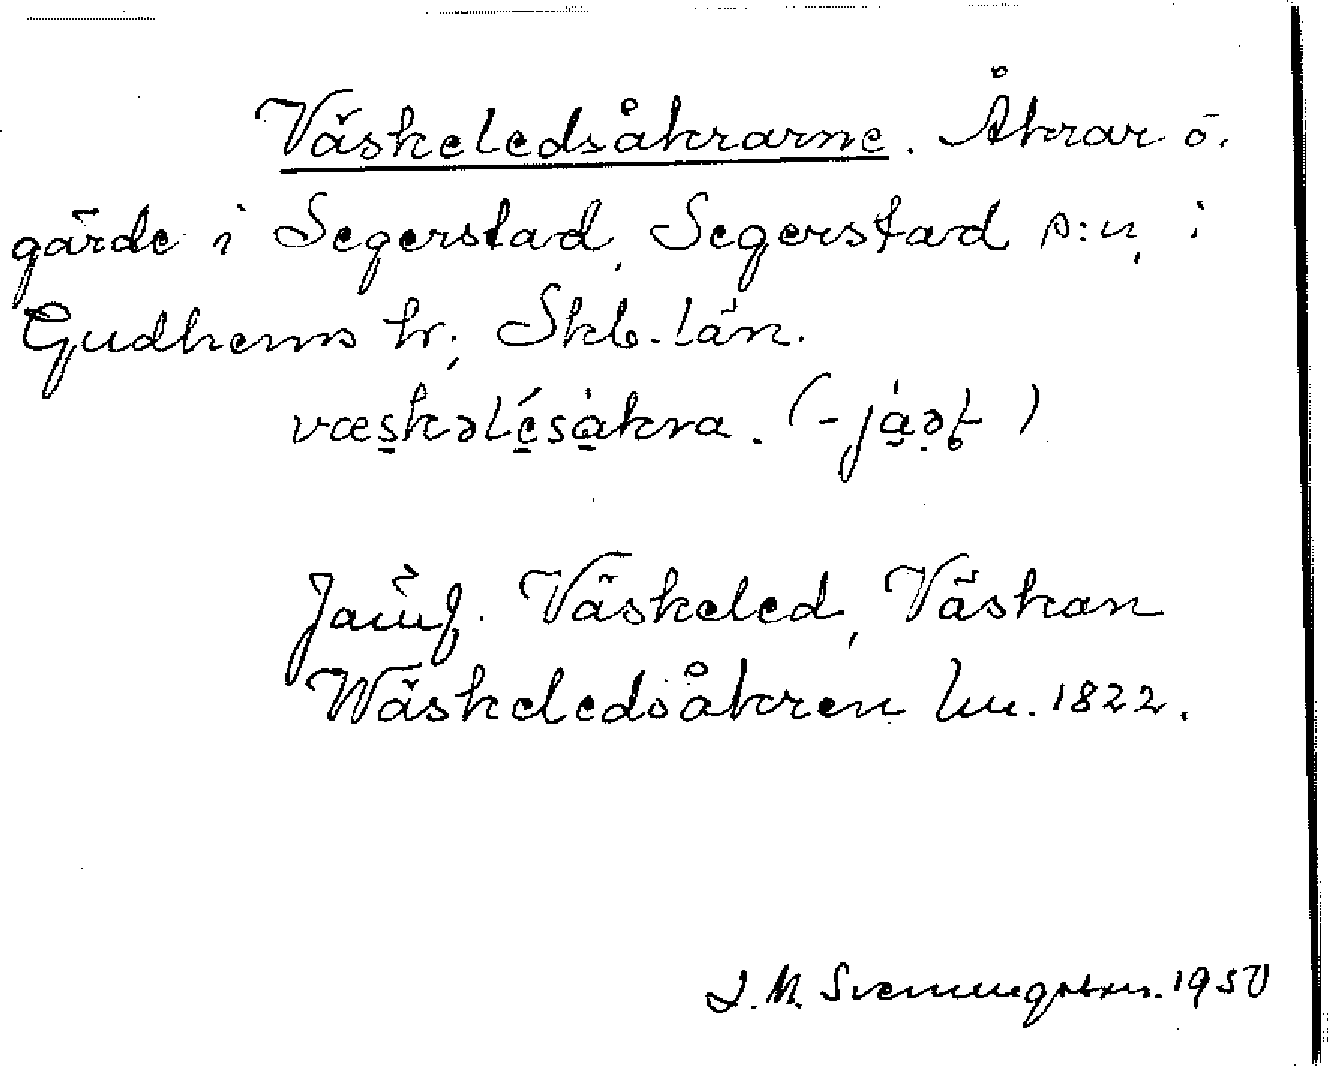 Väskeledsåkrarne. Åkrar ö.
gärde i Segerstad, Segerstad s:n, i
Gudhems hr., Skb. län.
væskəlésåkra. (-jaəɽ)
Jämf. Väskeled, Väskan
Wäskeledsåkren hm. 1822.
J. M. Svenungsson. 1950